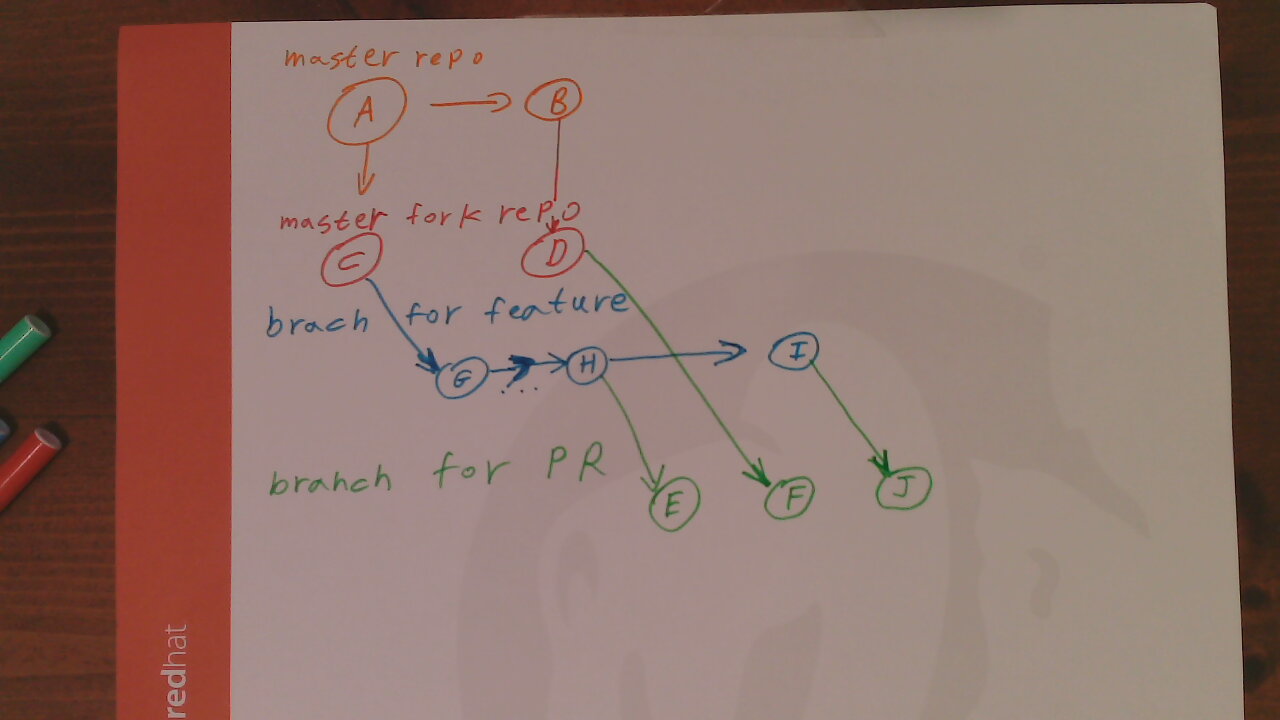 master repo
A B
master fork repo
C D
brach for feature
G ... H I
branch for PR
E F J
redhat